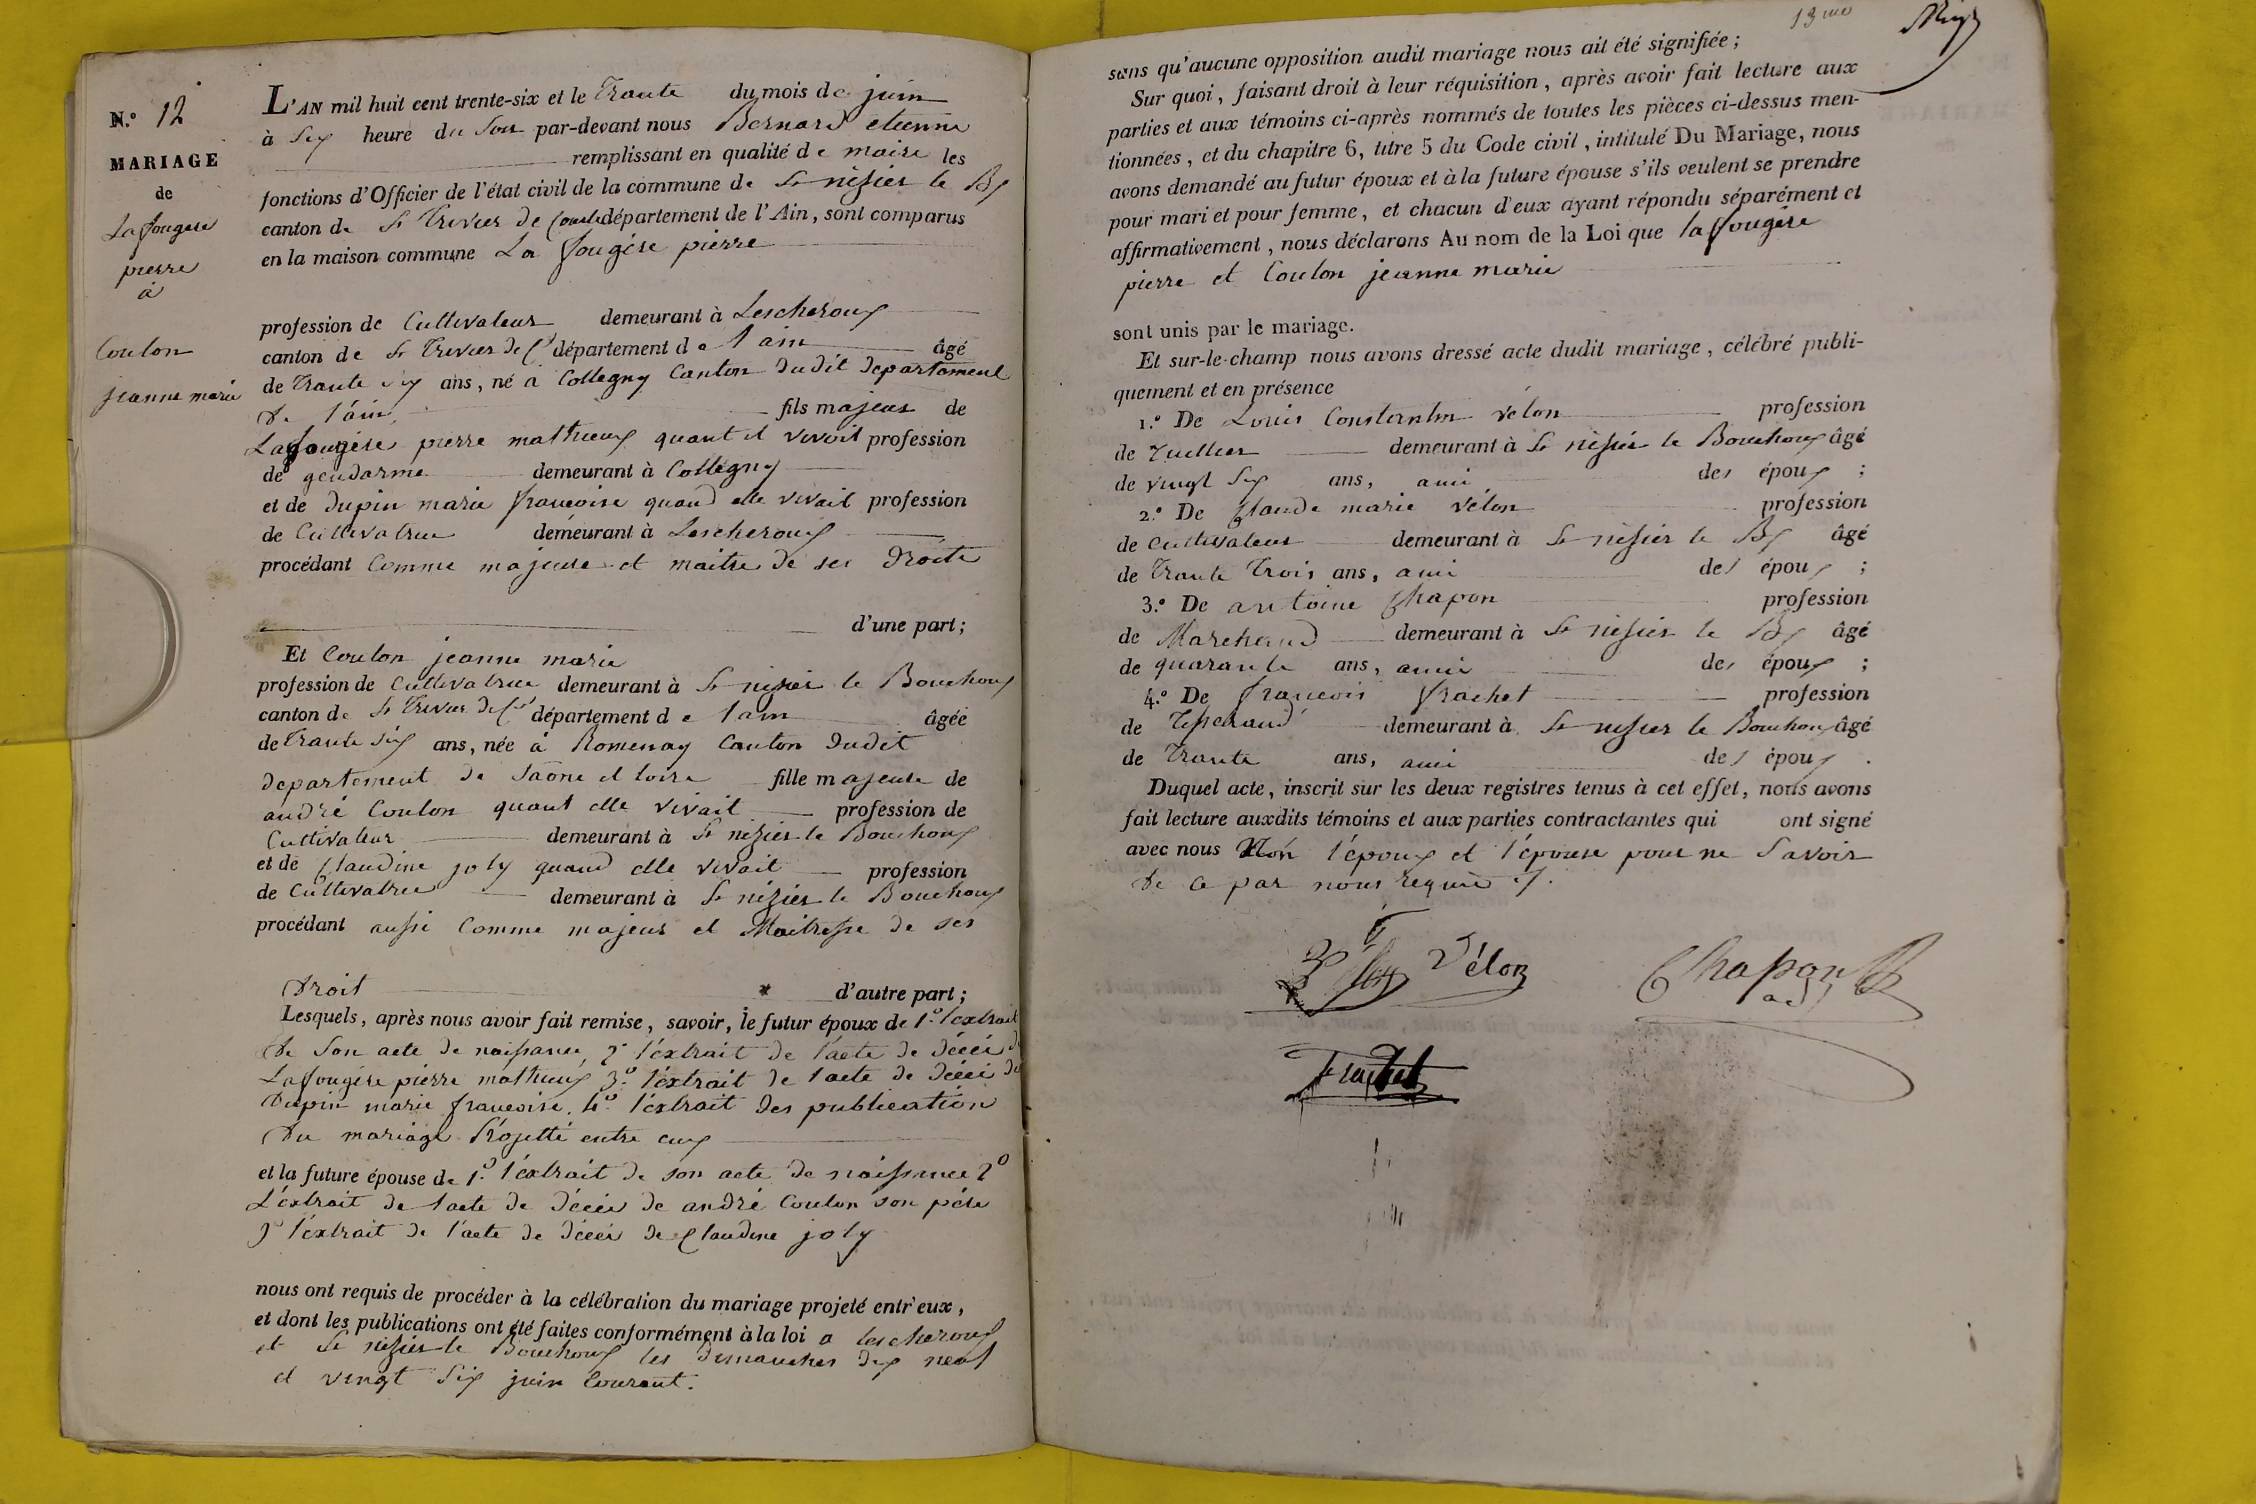 N.º 12
MARIAGE
de
La fougere
pierre
à
Coulon
jeanne marie
L'AN mil huit cent trente-six et le trante du mois de juin
à six heure du Soir par-devant nous Bernard etienne
remplissant en qualité de maire les
fonctions d'Officier de l'état civil de la commune de St nisier le Bx
canton de St Trivier de Courtes département de l'Ain, sont comparus
en la maison commune La fougére pierre
profession de Cultivateur demeurant à Lescheroux
canton de St Trivier de Cs département de l ain âgé
de trante six ans, né à Collegny Canton dudit departement
de l'ain, fils majeur de
Lafougére pierre mathieux quant il vivoit profession
de gendarme demeurant à Collegny
et de dupin marie francoise quand elle vivait profession
de Cultivatrice demeurant à Lescheroux
procédant Comme majeure et maitre de ses droits
d'une part;
Et Coulon jeanne marie
profession de Cultivatrice demeurant à St nizier le Bouchoux
canton de St Trivier de Cs département de l ain âgée
de trante six ans, née à Romenay Canton dudit
departement de Saône et loire fille majeure de
andré Coulon quant elle vivait profession de
Cultivateur demeurant à St nizier le Bouchoux
et de Claudine joly quand elle vivait profession
de Cultivatrice demeurant à St nizier le Bouchoux
procédant aussi Comme majeur et Maitresse de ses
droit d'autre part;
Lesquels, après nous avoir fait remise, savoir, le futur époux de 1.º l'extrait
de Son acte de naissance, 2º l'éxtrait de l'acte de décéi de
Lafougére pierre mathieux 3.º l'éxtrait de l'acte de décéi de
Dupin marie francoise. 4.º l'éxtrait des publication
du mariage Projetté entre eux
et la future épouse de 1.º l'éxtrait de son acte de naissance 2º
L'éxtrait de l'acte de décéi de andré Coulon son pére
3º l'éxtrait de l'acte de décéi de Claudine joly
nous ont requis de procéder à la célébration du mariage projeté entr'eux,
et dont les publications ont été faites conformément à la loi a lescheroux
et St nizier le Bouchoux les dimanches dix neuf
et vingt six juin Courant.
13me
sans qu'aucune opposition audit mariage nous ait été signifiée;
Sur quoi, faisant droit à leur réquisition, après avoir fait lecture aux
parties et aux témoins ci-après nommés de toutes les pièces ci-dessus men-
tionnées, et du chapitre 6, titre 5 du Code civil, intitulé Du Mariage, nous
avons demandé au futur époux et à la future épouse s'ils veulent se prendre
pour mari et pour femme, et chacun d'eux ayant répondu séparément et
affirmativement, nous déclarons Au nom de la Loi que lafougére
pierre et Coulon jeanne marie
sont unis par le mariage.
Et sur-le-champ nous avons dressé acte dudit mariage, célébré publi-
quement et en présence
1.º De Louis Constantin vélon profession
de Tuillier demeurant à St nisier le Bouchoux âgé
de vingt Six ans, ami des époux;
2.º De Claude marie vélon profession
de Cultivateur demeurant à St nisier le Bx âgé
de trante trois ans, ami des époux;
3.º De antoine Chapon profession
de Marchand demeurant à St nisier le Bx âgé
de quarante ans, ami des époux;
4.º De francois frachet profession
de Tisserand demeurant à St nisier le Bouchoux âgé
de trante ans, ami des époux.
Duquel acte, inscrit sur les deux registres tenus à cet effet, nous avons
fait lecture auxdits témoins et aux parties contractantes qui ont signé
avec nous Non l'époux et l'épouse pour ne Savoir
de ce par nous requis
Vélon
Chapon
frachet